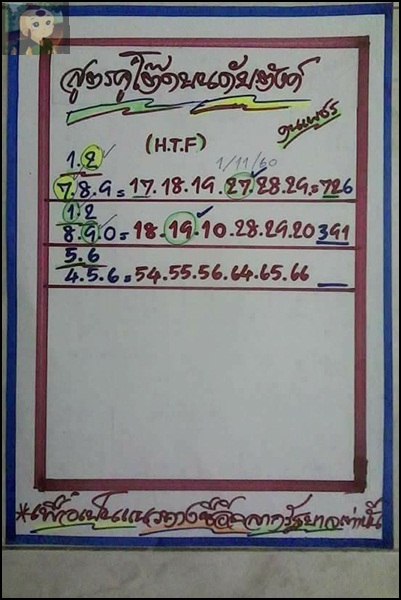 สูตรคู่โต๊ดบนดับตังค์
คนเพชร
(H.T.F)
1/11/60
1.2
7.8.9 = 17.18.19.27.28.29 = 726
1.2
8.9.0 = 18.19.10.28.29.20 391
5.6
4.5.6 = 54.55.56.64.65.66
*เพื่อเป็นแนวทางซื้อสลากรัฐบาลเท่านั้น